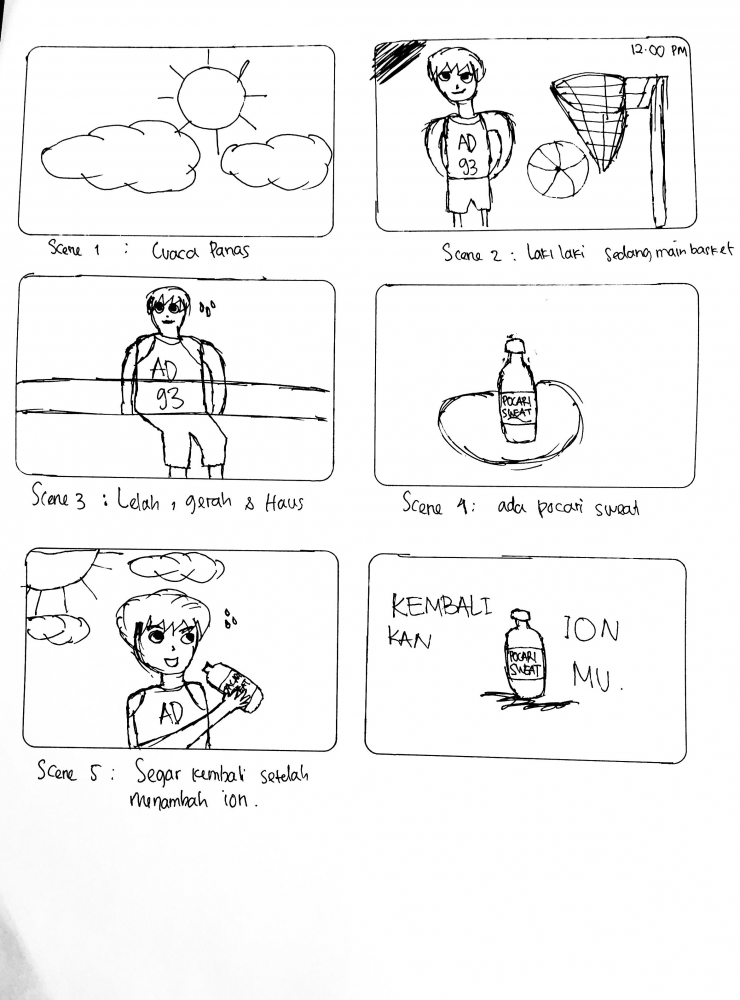 Scene 1 : Cuaca Panas
12.00 PM
AD
93
Scene 2 : Laki laki sedang main basket
AD
93
Scene 3 : Lelah, gerah & Haus
POCARI
SWEAT
Scene 4: ada pocari sweat
AD
POCARI
SWEAT
Scene 5 : Segar kembali setelah
menambah ion.
KEMBALI
KAN
POCARI
SWEAT
ION
MU.